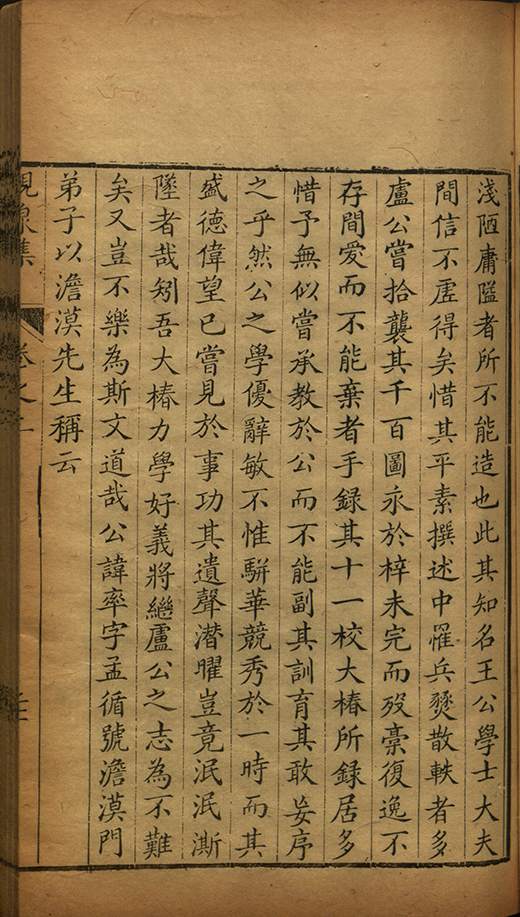 淺陋庸隘者所不能造也此其知名王公學士大夫
間信不虗得矣惜其平素撰述中罹兵燹散軼者多
盧公嘗拾襲其千百圖永於梓未完而歿藁復逸不
存間爱而不能棄者手録其十一校大椿所録居多
惜予無似嘗承教於公而不能副其訓育其敢妄序
之乎然公之學優辭敏不惟騈華競秀於一時而其
盛德偉望已嘗見於事功其遺聲潜曜豈竟泯泯澌
墜者哉矧吾大椿力學好義將繼盧公之志為不難
矣又豈不樂為斯文道哉公諱率字孟循號澹漠門
弟子以澹漠先生稱云